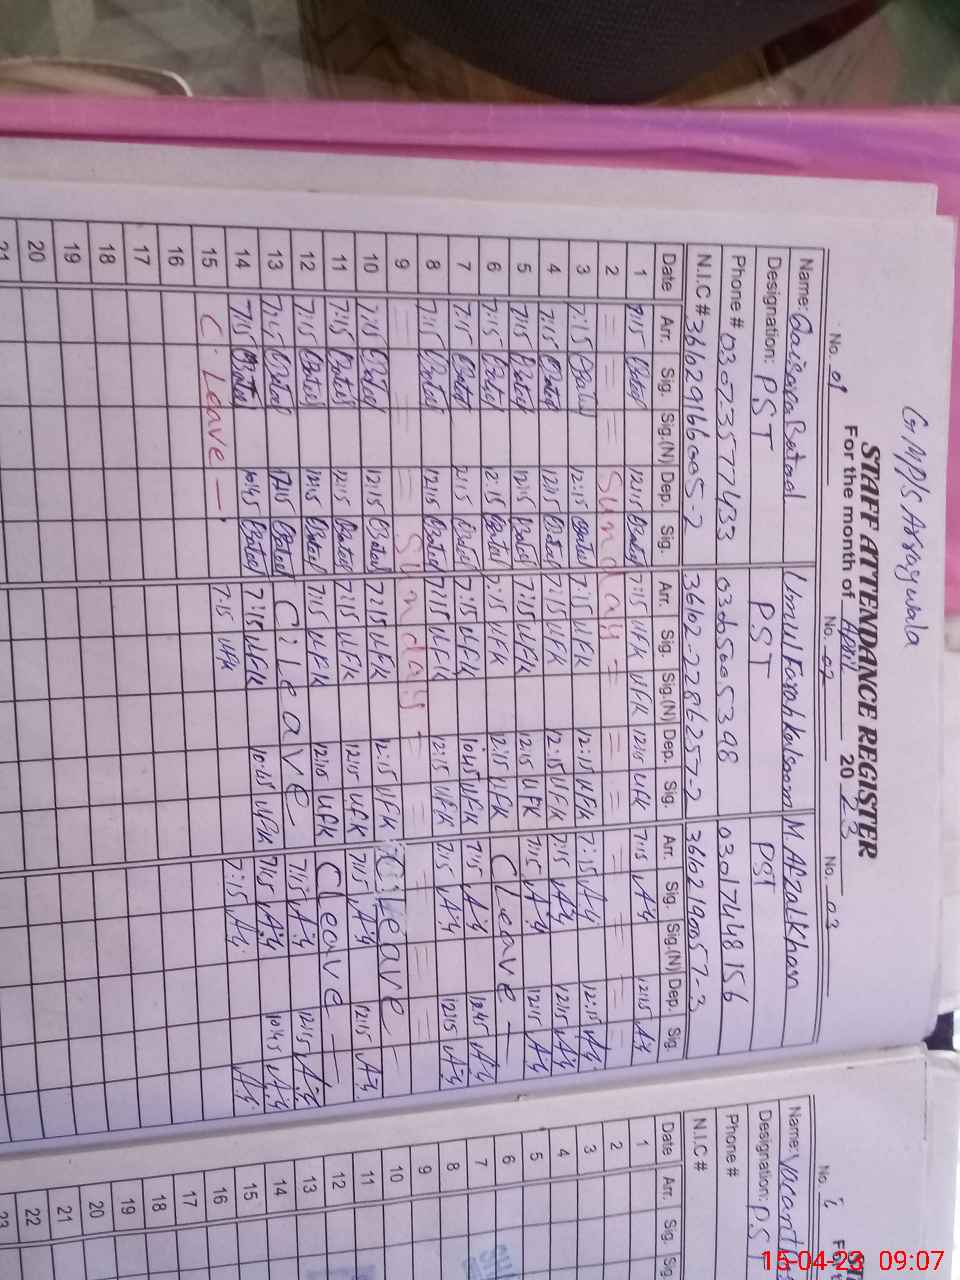 GMP/S Arraywala
STAFF ATTENDANCE REGISTER
For the month of April 2023
No. 01 No. 02 No. 03
Name: Qaisara Batool Umul Farah Kalsoom M. Afzal Khan
Designation: PST PST PST
Phone # 03073577433 03005005398 03017448156
N.I.C # 361029166005-2 36102-2286257-2 36102190057-3
Date Arr. Sig. Sig.(N) Dep. Sig. Arr. Sig. Sig.(N) Dep. Sig. Arr. Sig. Sig.(N) Dep. Sig.
1 7:15 Batool 12:15 Batool 7:15 UFK UFK 12:15 UFK 7:15 12:15
2 = = = Sunday = = = = =
3 7:15 Batool 12:15 Batool 7:15 UFK 12:15 UFK 7:15 12:15
4 7:15 Batool 12:15 Batool 7:15 UFK 12:15 UFK 7:15 12:15
5 7:15 Batool 12:15 Batool 7:15 UFK 12:15 UFK 7:15 12:15
6 7:15 Batool 12:15 Batool 7:15 UFK 12:15 UFK C Leave
7 7:15 Batool 12:15 Batool 7:15 UFK 10:45 UFK 7:15 10:45
8 7:15 Batool 12:15 Batool 7:15 UFK 12:15 UFK 7:15 12:15
9 = = = Sunday = = =
10 7:15 Batool 12:15 Batool 7:15 UFK 12:15 UFK C Leave
11 7:15 Batool 12:15 Batool 7:15 UFK 12:15 UFK 7:15 12:15
12 7:15 Batool 12:15 Batool 7:15 UFK 12:15 UFK C Leave
13 7:15 Batool 12:15 Batool C Leave 7:15 12:15
14 7:15 Batool 10:45 Batool 7:15 UFK 10:45 UFK 7:15 10:45
15 C. Leave 7:15 UFK 7:15
16
17
18
19
20
21
No.
Name: Vacant
Designation: PST
Phone #
N.I.C #
Date Arr. Sig.
1
2
3
4
5
6
7
8
9
10
11
12
13
14
15
16
17
18
19
20
21
22
23
15-04-23 09:07